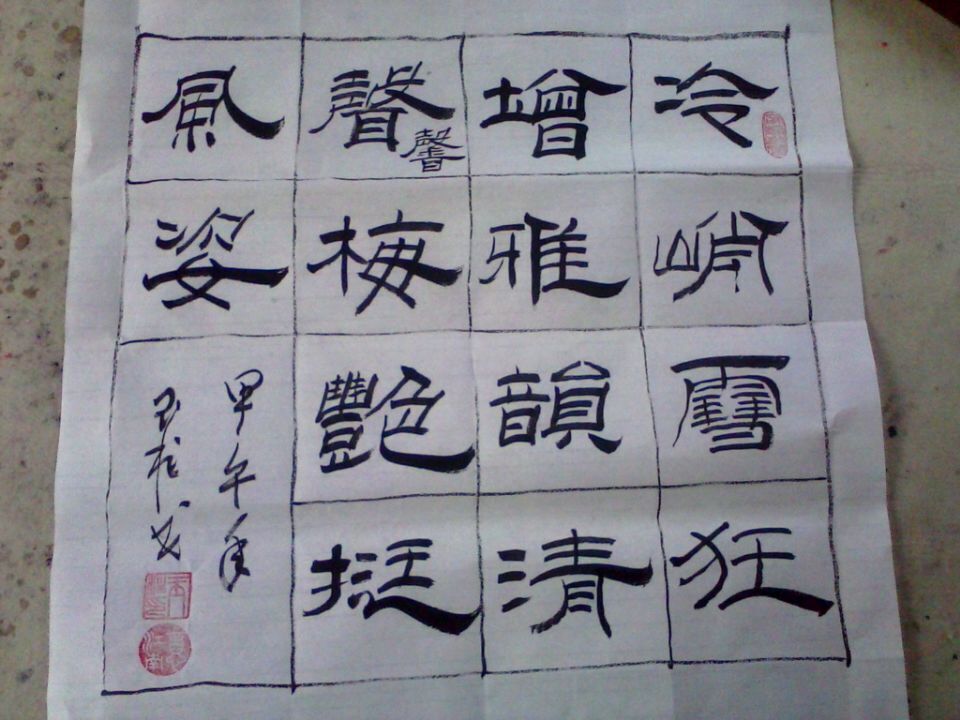 冷峭雪狂
增雅韻清
聲馨梅艷挺
風姿
甲午年